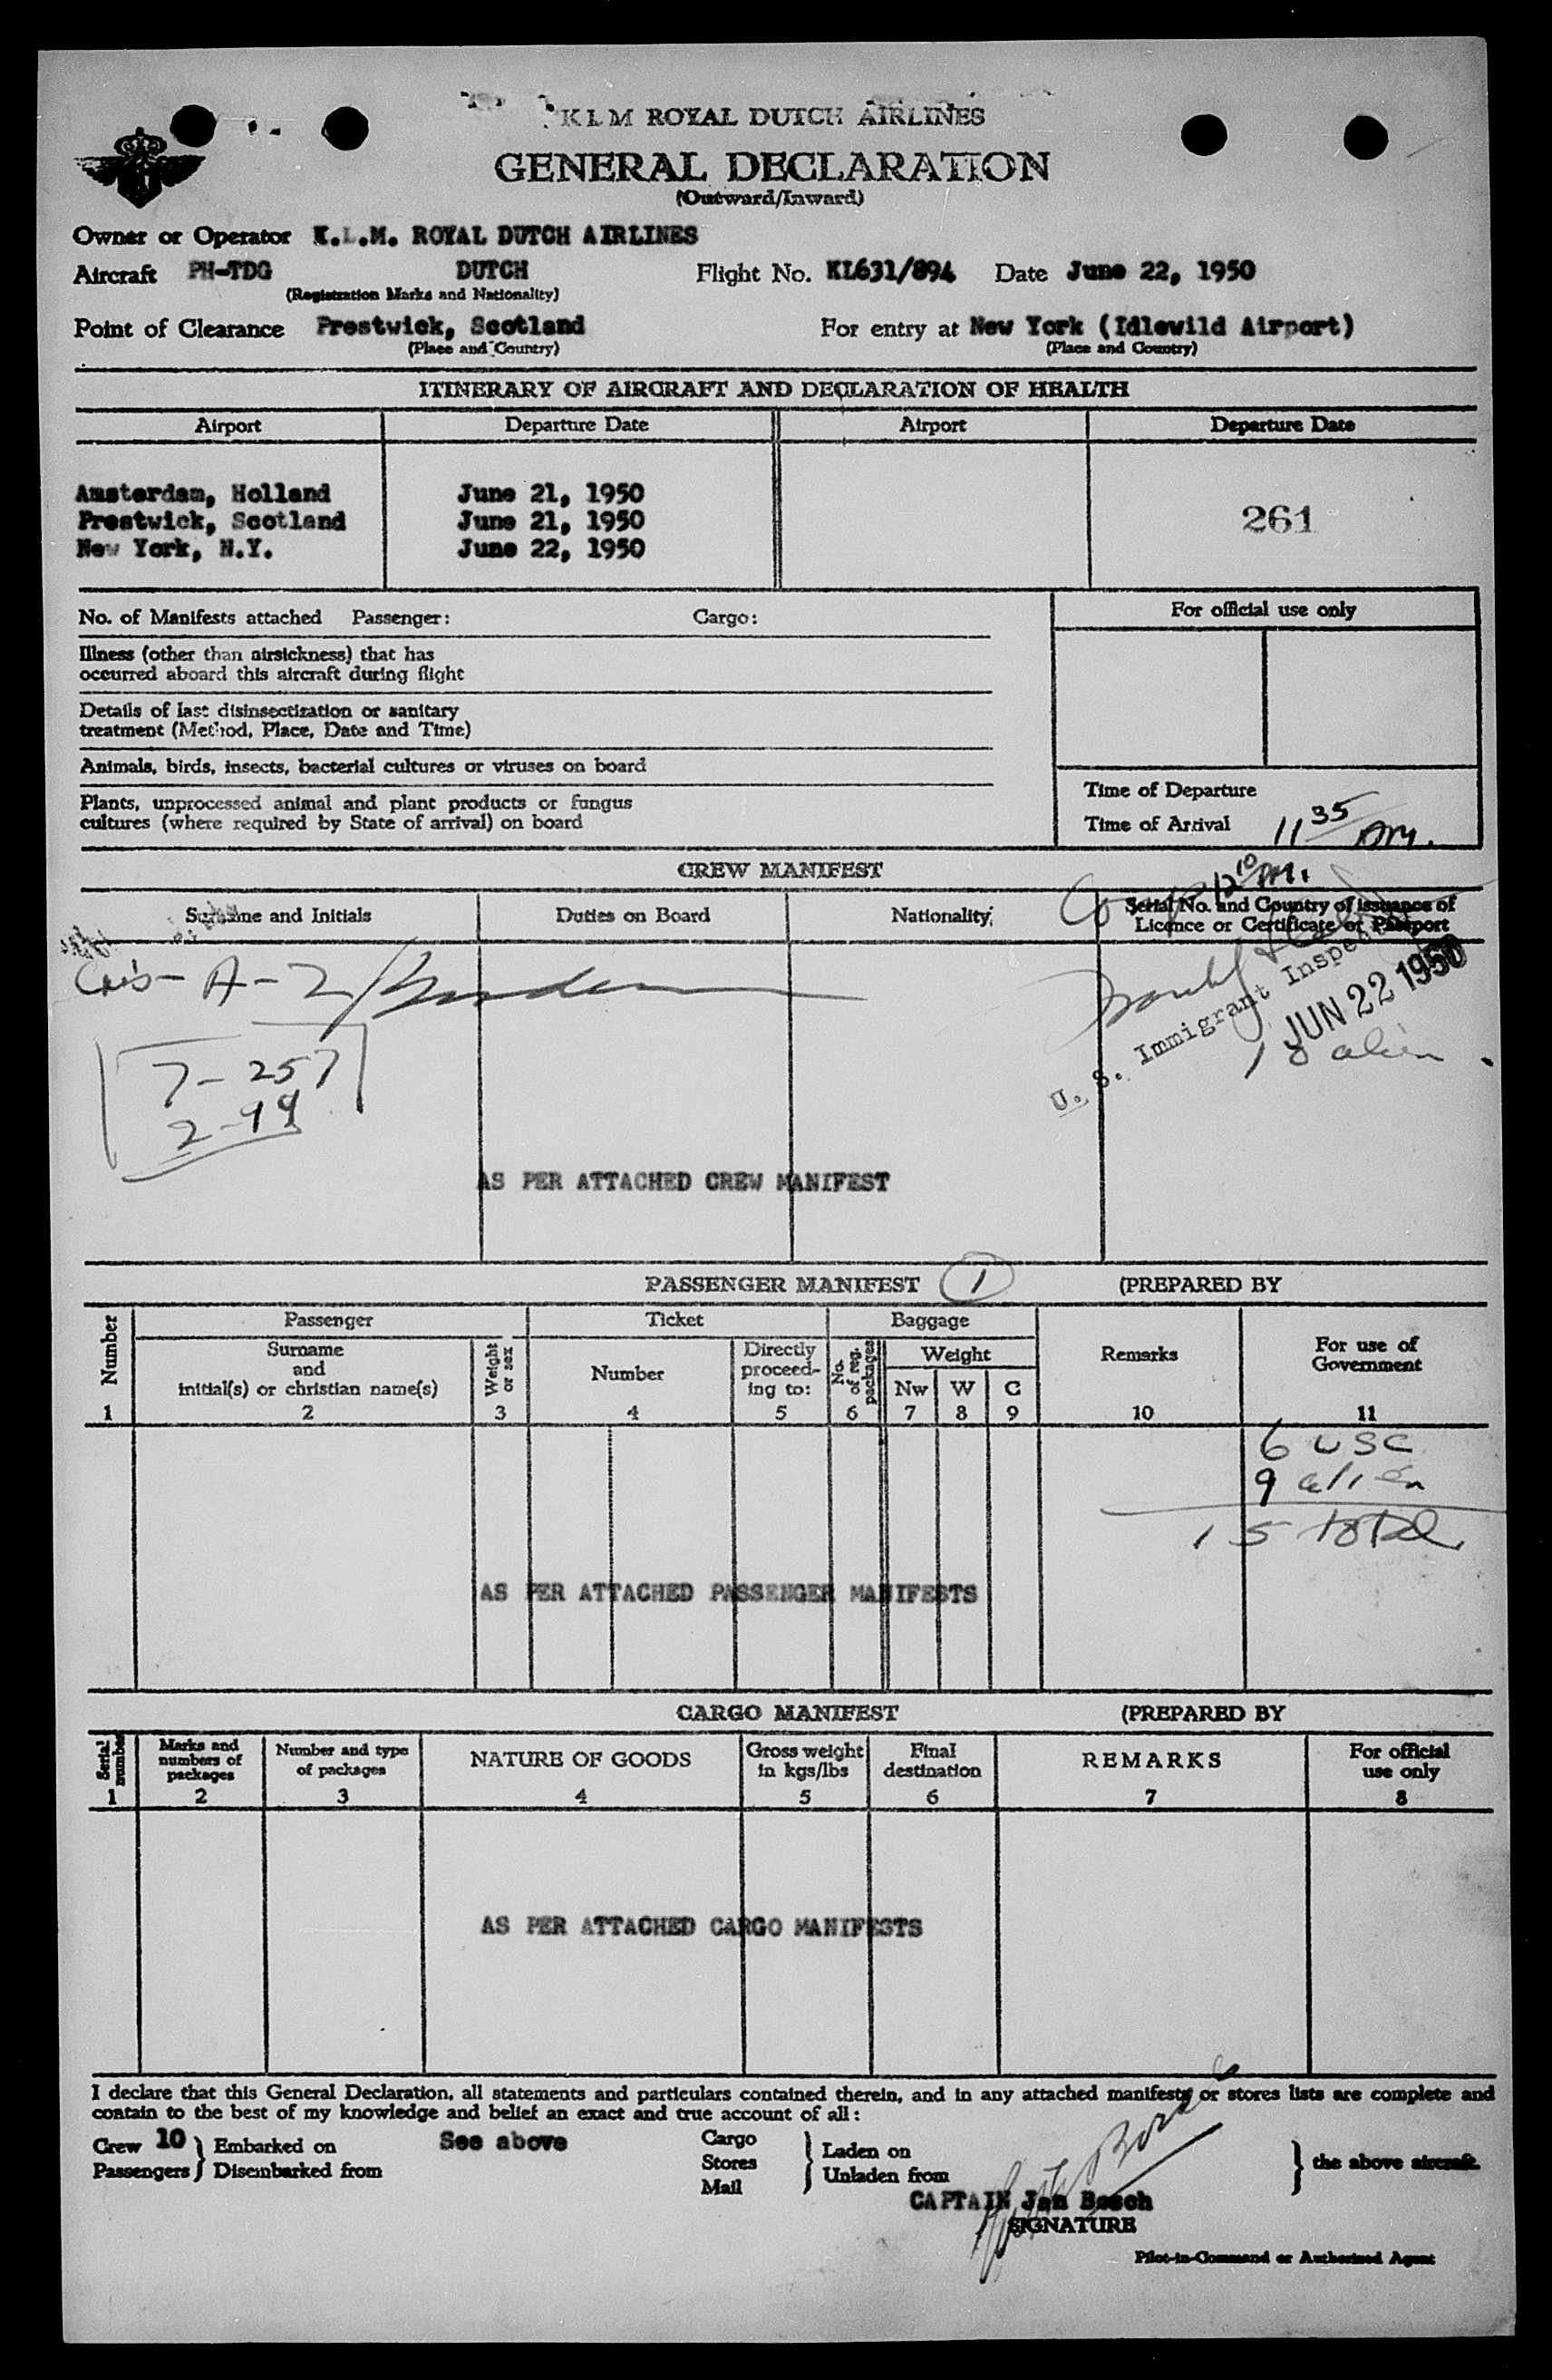 KLM ROYAL DUTCH AIRLINES
GENERAL DECLARATION
(Outward/Inward)
Owner or Operator K.L.M. ROYAL DUTCH AIRLINES
Aircraft PH-TDG DUTCH Flight No. KL631/894 Date June 22, 1950
(Registration Marks and Nationality)
Point of Clearance Prestwick, Scotland For entry at New York (Idlewild Airport)
(Place and Country) (Place and Country)
ITINERARY OF AIRCRAFT AND DECLARATION OF HEALTH
Airport Departure Date Airport Departure Date
Amsterdam, Holland June 21, 1950
Prestwick, Scotland June 21, 1950 261
New York, N.Y. June 22, 1950
No. of Manifests attached Passenger: Cargo: For official use only
Illness (other than airsickness) that has
occurred aboard this aircraft during flight
Details of last disinsectization or sanitary
treatment (Method, Place, Date and Time)
Animals, birds, insects, bacterial cultures or viruses on board
Plants, unprocessed animal and plant products or fungus
cultures (where required by State of arrival) on board
Time of Departure
Time of Arrival 11 35 AM.
CREW MANIFEST
12 10 PM.
Surname and Initials Duties on Board Nationality Serial No. and Country of issuance of
Licence or Certificate or Passport
A-2
U. S. Immigrant Inspector
JUN 22 1950
10 alien
7-257
2-99
AS PER ATTACHED CREW MANIFEST
PASSENGER MANIFEST 1 (PREPARED BY
Number Passenger Ticket Baggage Remarks For use of
Government
Surname
and
initial(s) or christian name(s)
Weight
or sex
Number
Directly
proceed-
ing to:
No.
of reg.
packages
Weight
Nw W C
1 2 3 4 5 6 7 8 9 10 11
6 USC
9 alien
15 total
AS PER ATTACHED PASSENGER MANIFESTS
CARGO MANIFEST (PREPARED BY
Serial
number
Marks and
numbers of
packages
Number and type
of packages
NATURE OF GOODS
Gross weight
in kgs/lbs
Final
destination
REMARKS
For official
use only
1 2 3 4 5 6 7 8
AS PER ATTACHED CARGO MANIFESTS
I declare that this General Declaration, all statements and particulars contained therein, and in any attached manifests or stores lists are complete and
contain to the best of my knowledge and belief an exact and true account of all:
Crew 10 } Embarked on See above Cargo } Laden on } the above aircraft.
Passengers } Disembarked from Stores Unladen from
Mail
CAPTAIN Jan Bosch
SIGNATURE
Pilot-in-Command or Authorised Agent